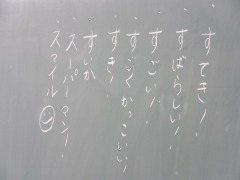 ・すてき！
・すばらしい！
・すごい！
・すごくかっこいい！
・すき！
・すいか
・スーパーマン！
・スマイル